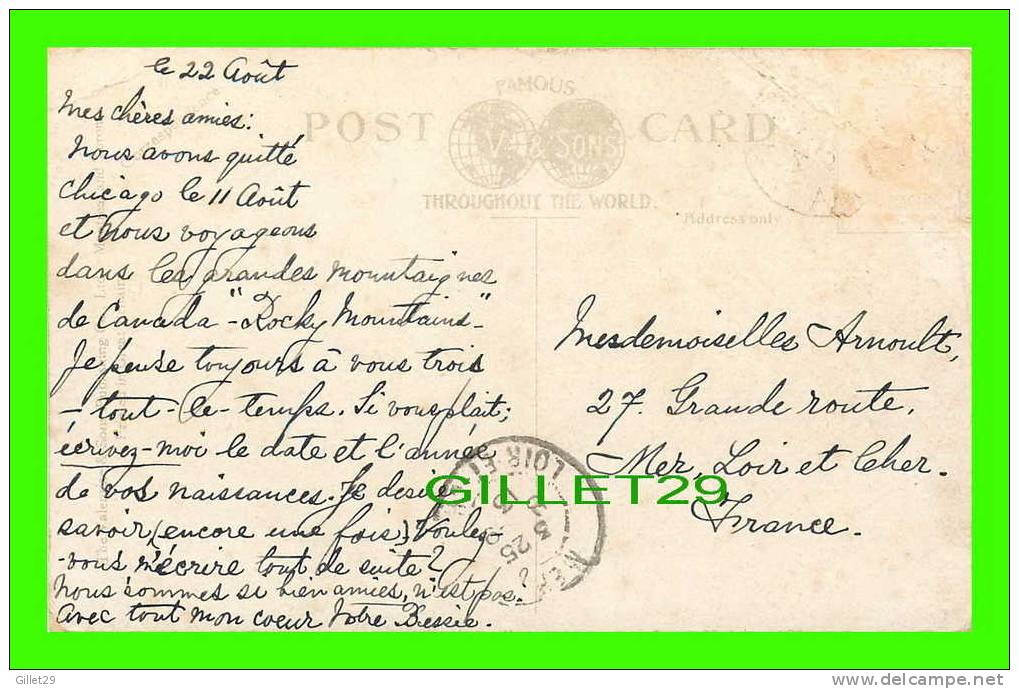 le 22 Août
Mes chères amies:
Nous avons quitté
Chicago le 11 Août
et nous voyageons
dans les grandes mountaignes
de Canada "Rocky Mountains"
Je pense toujours à vous trois
- tout - le - temps. Si vous plait;
écrivez-moi le date et l'année
de vos naissances. Je desire
savoir (encore une fois) Voulez-
-vous m'écrire tout de suite?
Nous sommes si bien amies, n'est pas.
Avec tout mon coeur Votre Bessie.
FAMOUS
POST CARD
V & SONS
THROUGHOUT THE WORLD.
Address only
Mesdemoiselles Arnoult,
27. Grande route,
Mer, Loir et Cher.
France.
LOIR-ET
25
GILLET29
Gillet29
www.delcampe.net